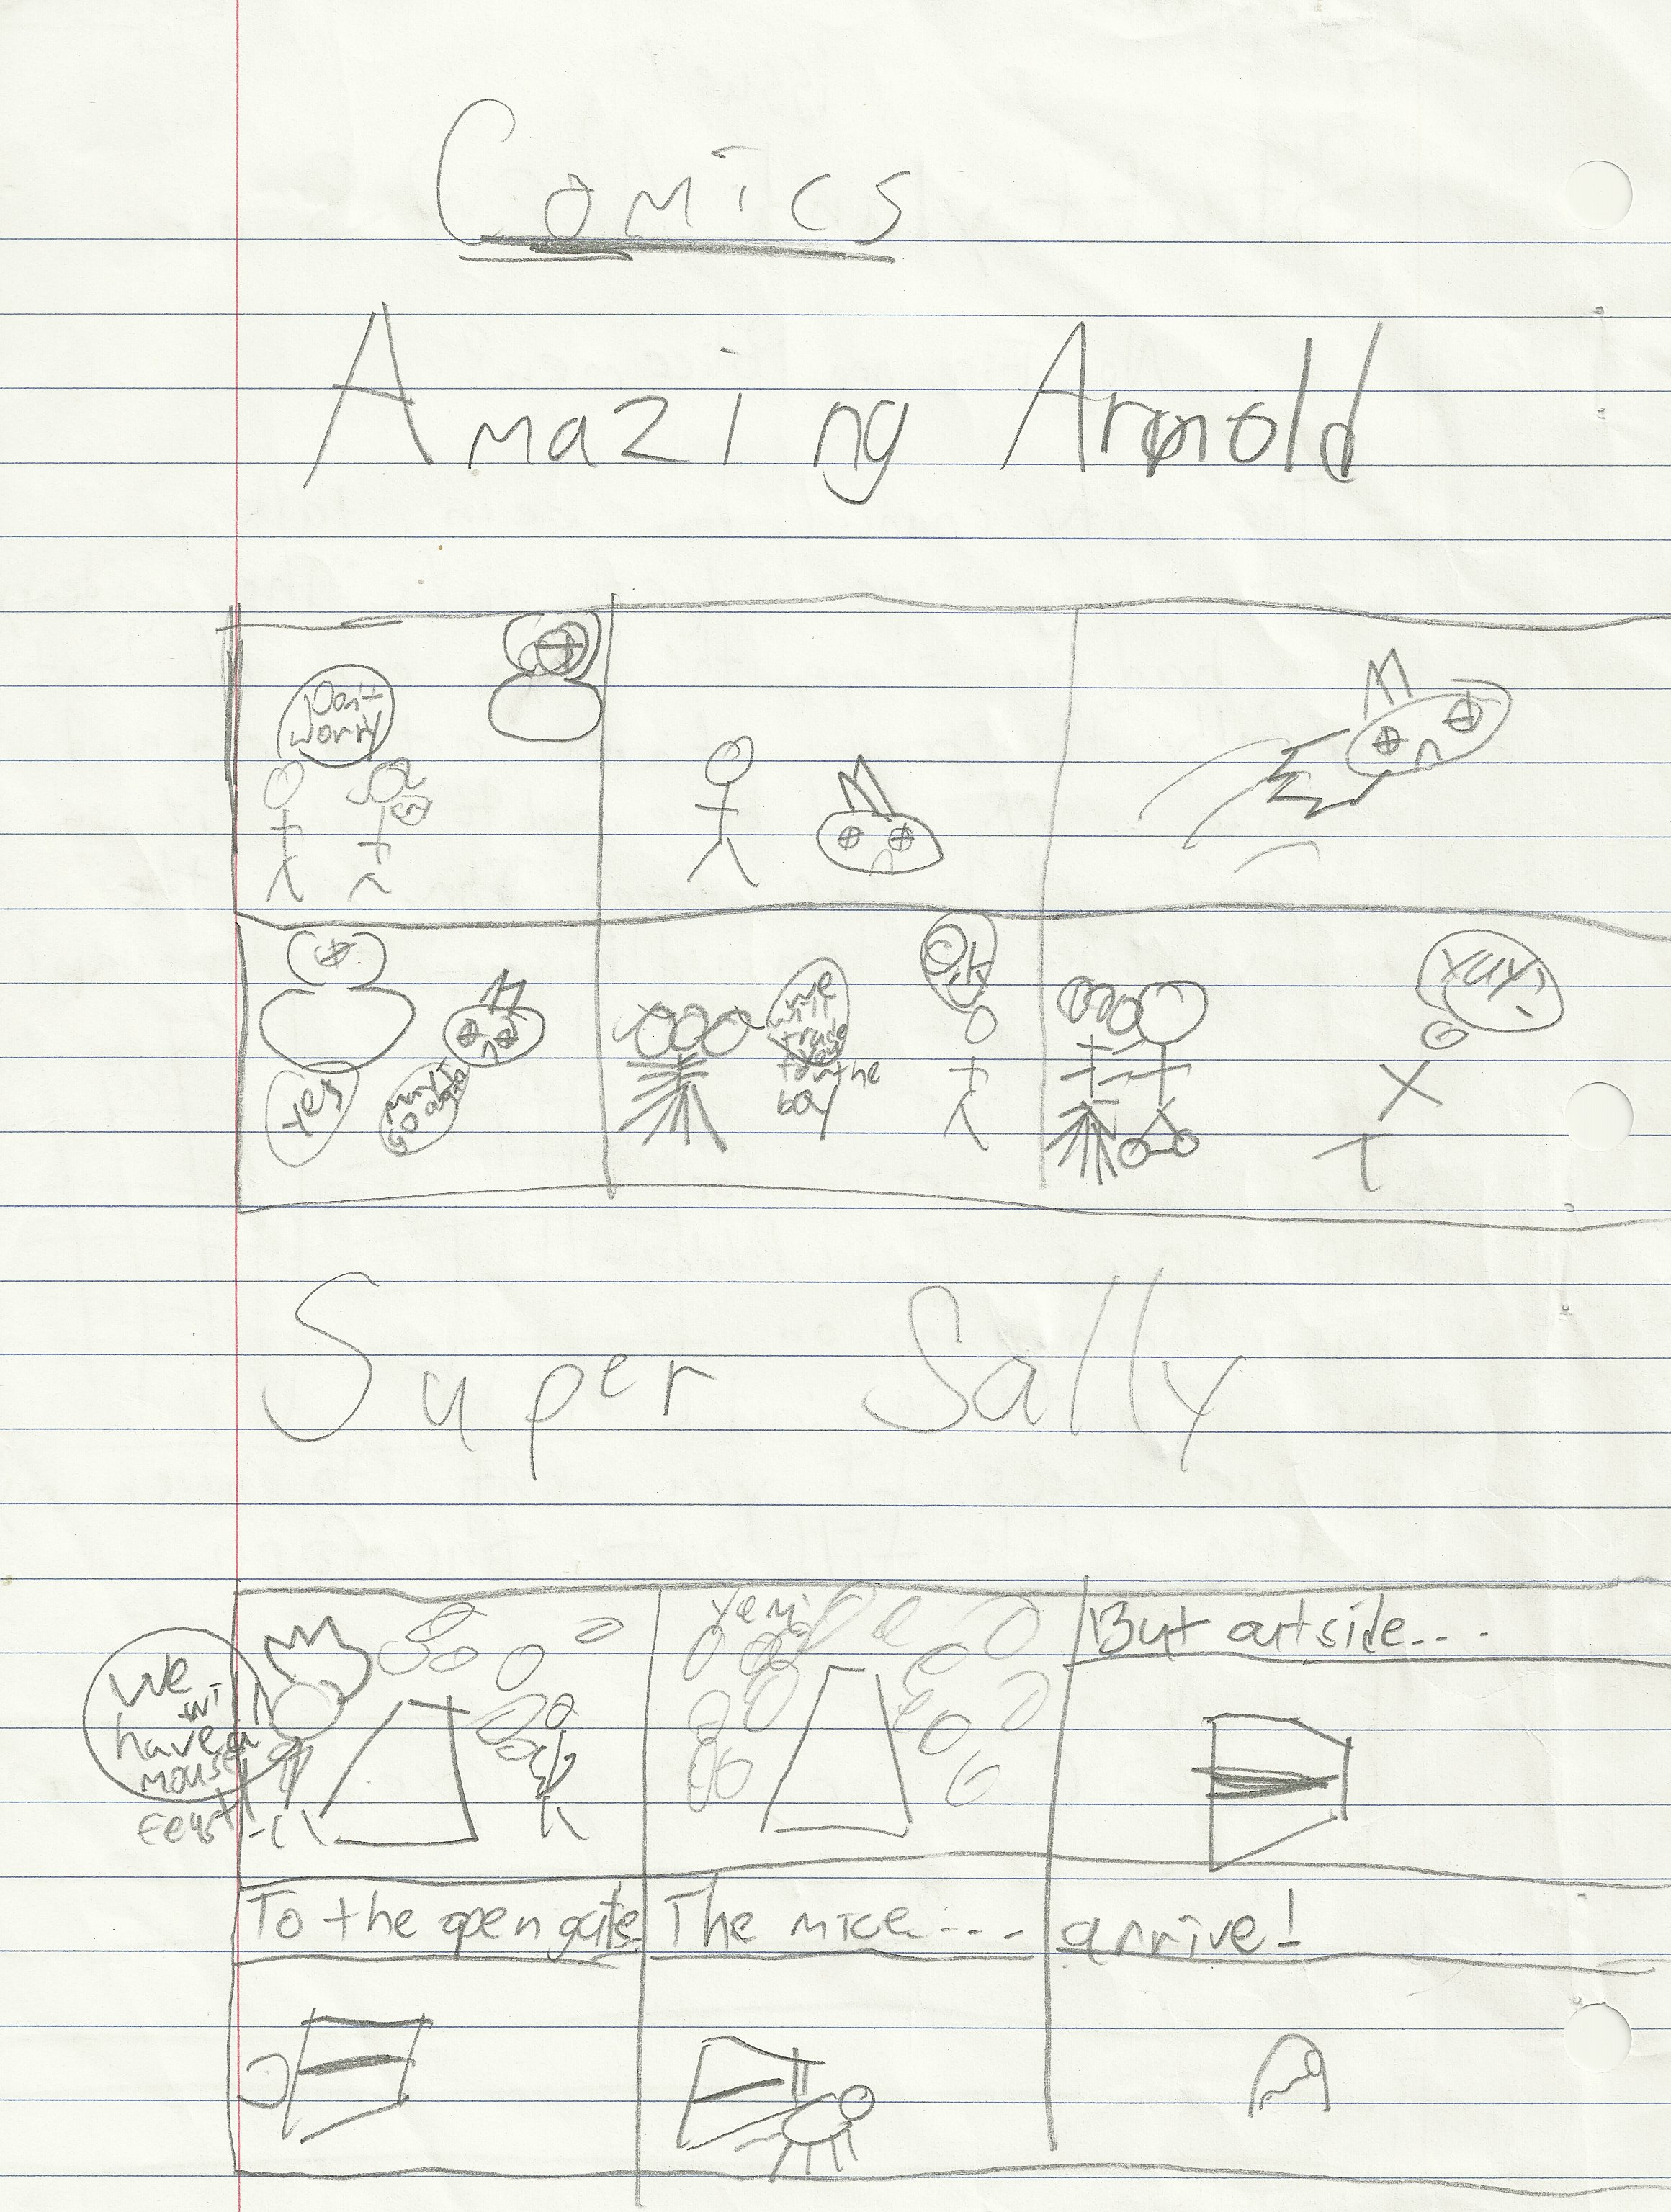 Comics
Amazing Arnold
Don't
worry
Yes
may I
go again
we
will
trade
you
for the
boy
Ok
Yay!
Super Sally
We
will
have a
mouse
feast!
Yem!
But outside...
To the open gate
The mice....
arrive!